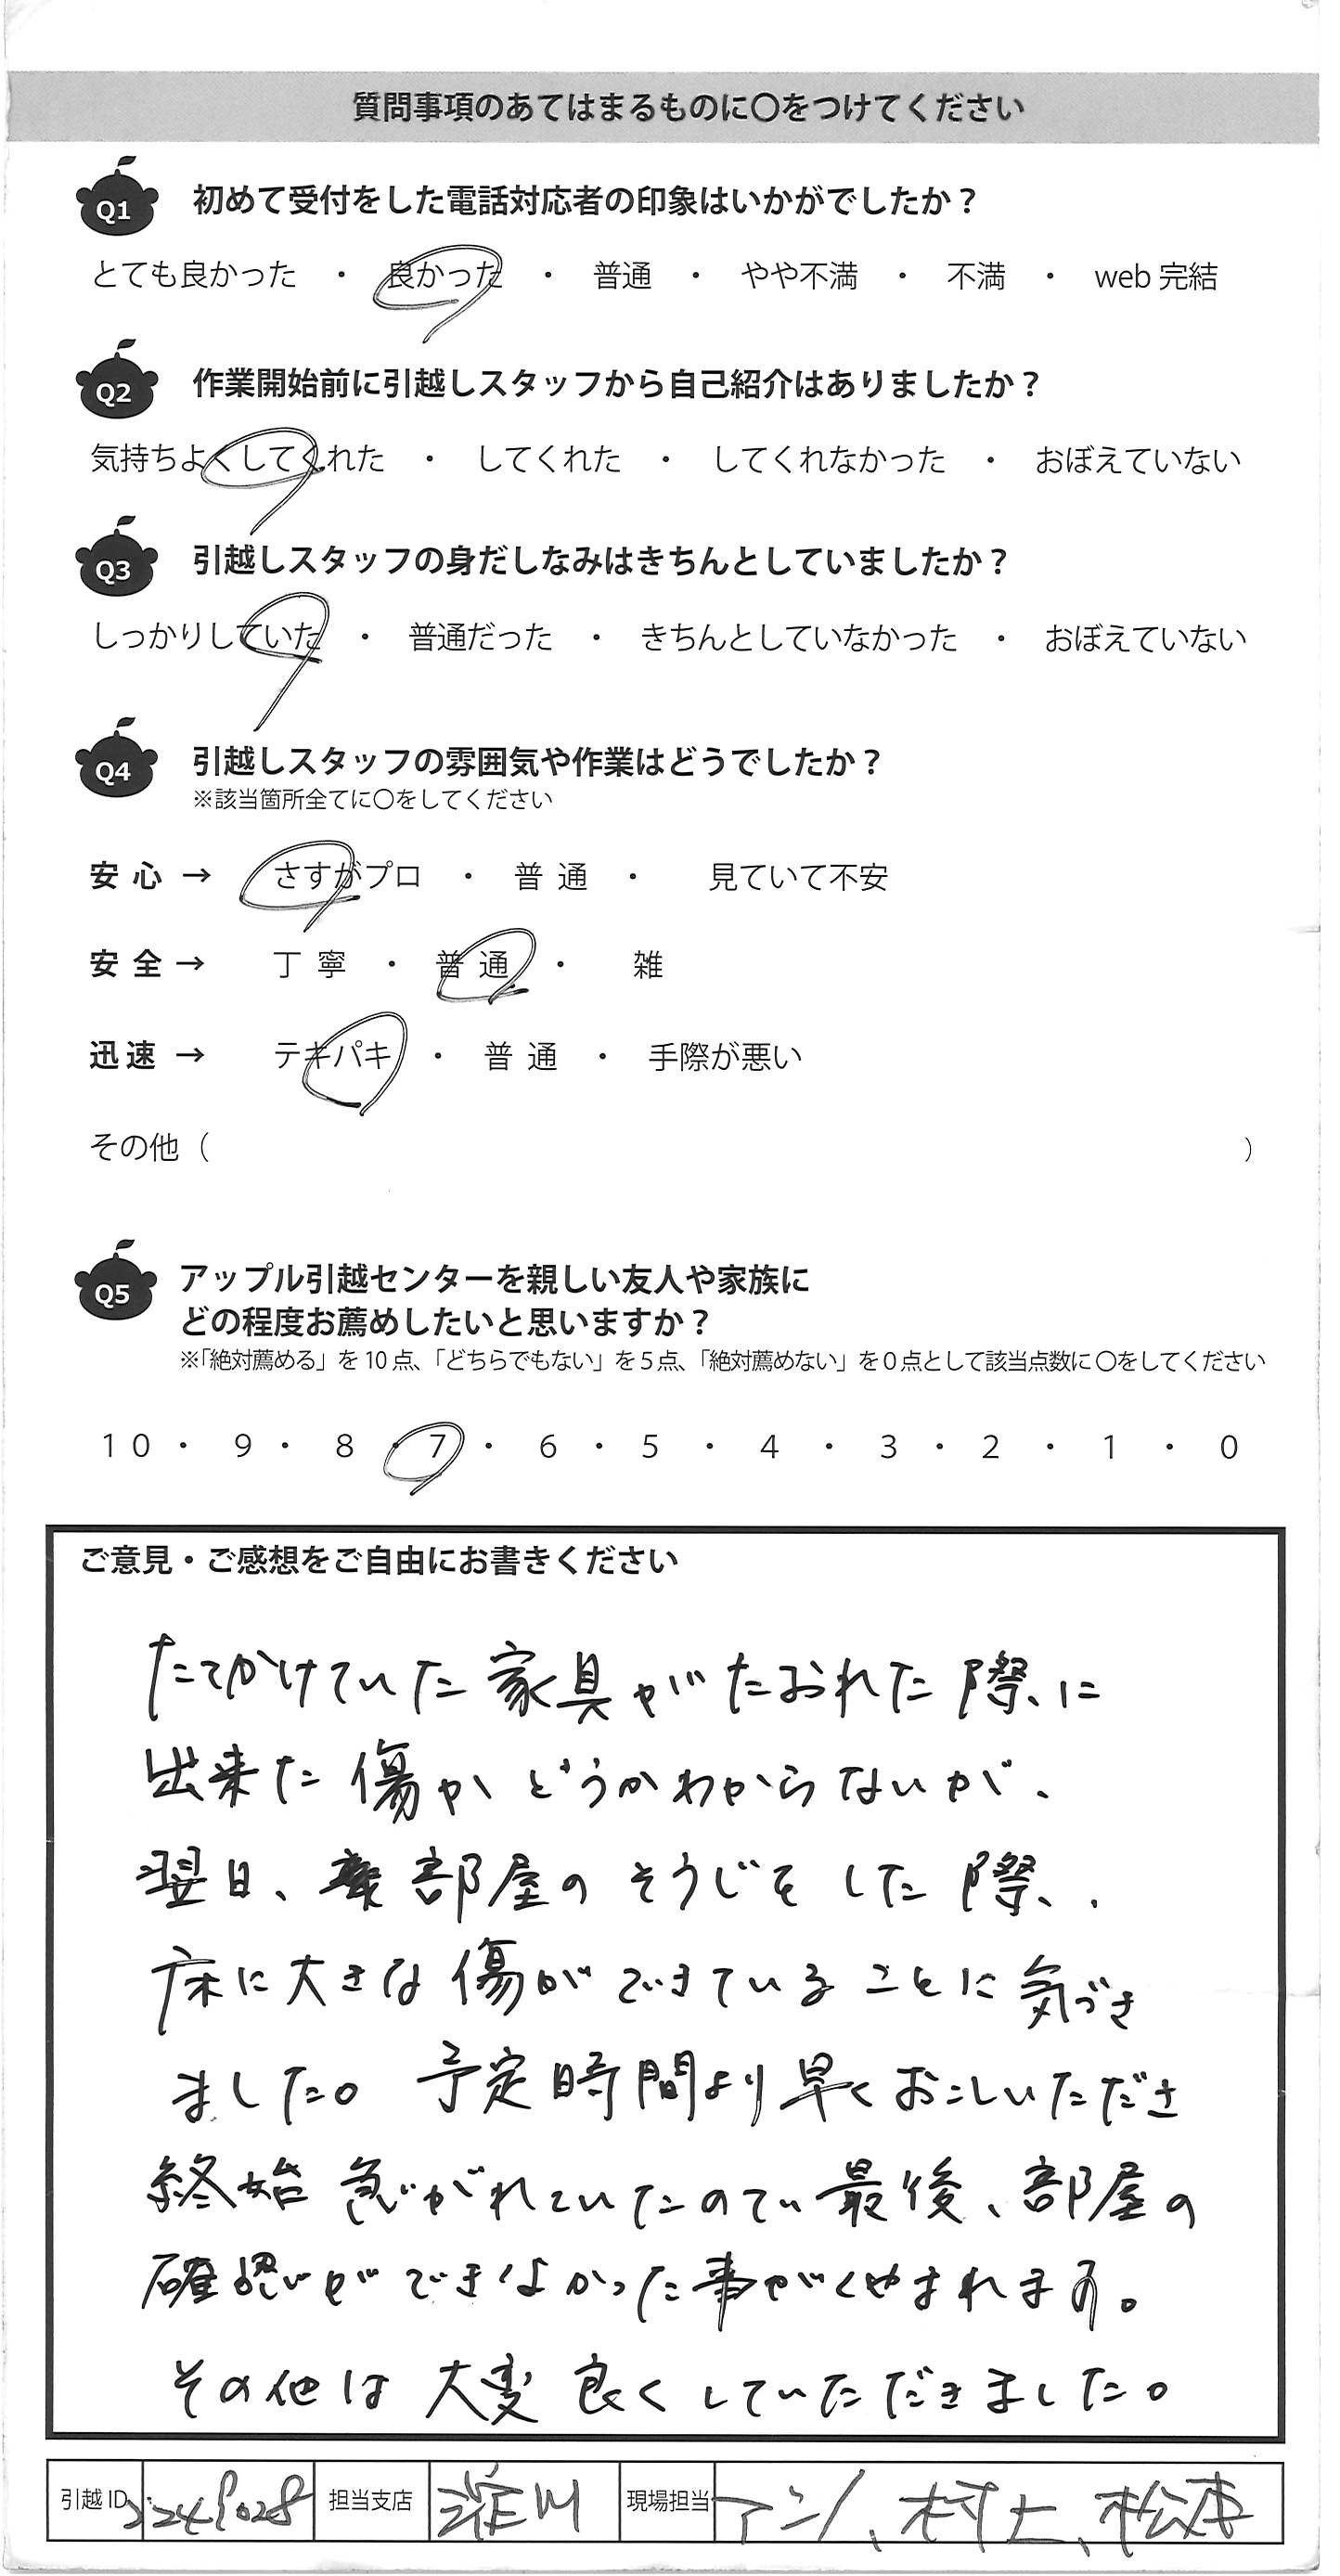 質問事項のあてはまるものに〇をつけてください
Q1 初めて受付をした電話対応者の印象はいかがでしたか？
とても良かった ・ 良かった ・ 普通 ・ やや不満 ・ 不満 ・ web 完結
Q2 作業開始前に引越しスタッフから自己紹介はありましたか？
気持ちよくしてくれた ・ してくれた ・ してくれなかった ・ おぼえていない
Q3 引越しスタッフの身だしなみはきちんとしていましたか？
しっかりしていた ・ 普通だった ・ きちんとしていなかった ・ おぼえていない
Q4 引越しスタッフの雰囲気や作業はどうでしたか？
※該当箇所全てに〇をしてください
安心 → さすがプロ ・ 普通 ・ 見ていて不安
安全 → 丁寧 ・ 普通 ・ 雑
迅速 → テキパキ ・ 普通 ・ 手際が悪い
その他（ ）
Q5 アップル引越センターを親しい友人や家族に
どの程度お薦めしたいと思いますか？
※「絶対薦める」を10点、「どちらでもない」を5点、「絶対薦めない」を0点として該当点数に〇をしてください
10 ・ 9 ・ 8 ・ 7 ・ 6 ・ 5 ・ 4 ・ 3 ・ 2 ・ 1 ・ 0
ご意見・ご感想をご自由にお書きください
たてかけていた家具がたおれた際に
出来た傷かどうかわからないが、
翌日、部屋のそうじをした際、
床に大きな傷ができていることに気づき
ました。予定時間より早くおこしいただき
終始急がれていたので最後、部屋の
確認ができなかった事がくやまれます。
その他は大変良くしていただきました。
引越ID 2249028 担当支店 淀川 現場担当 アン、村上、松本